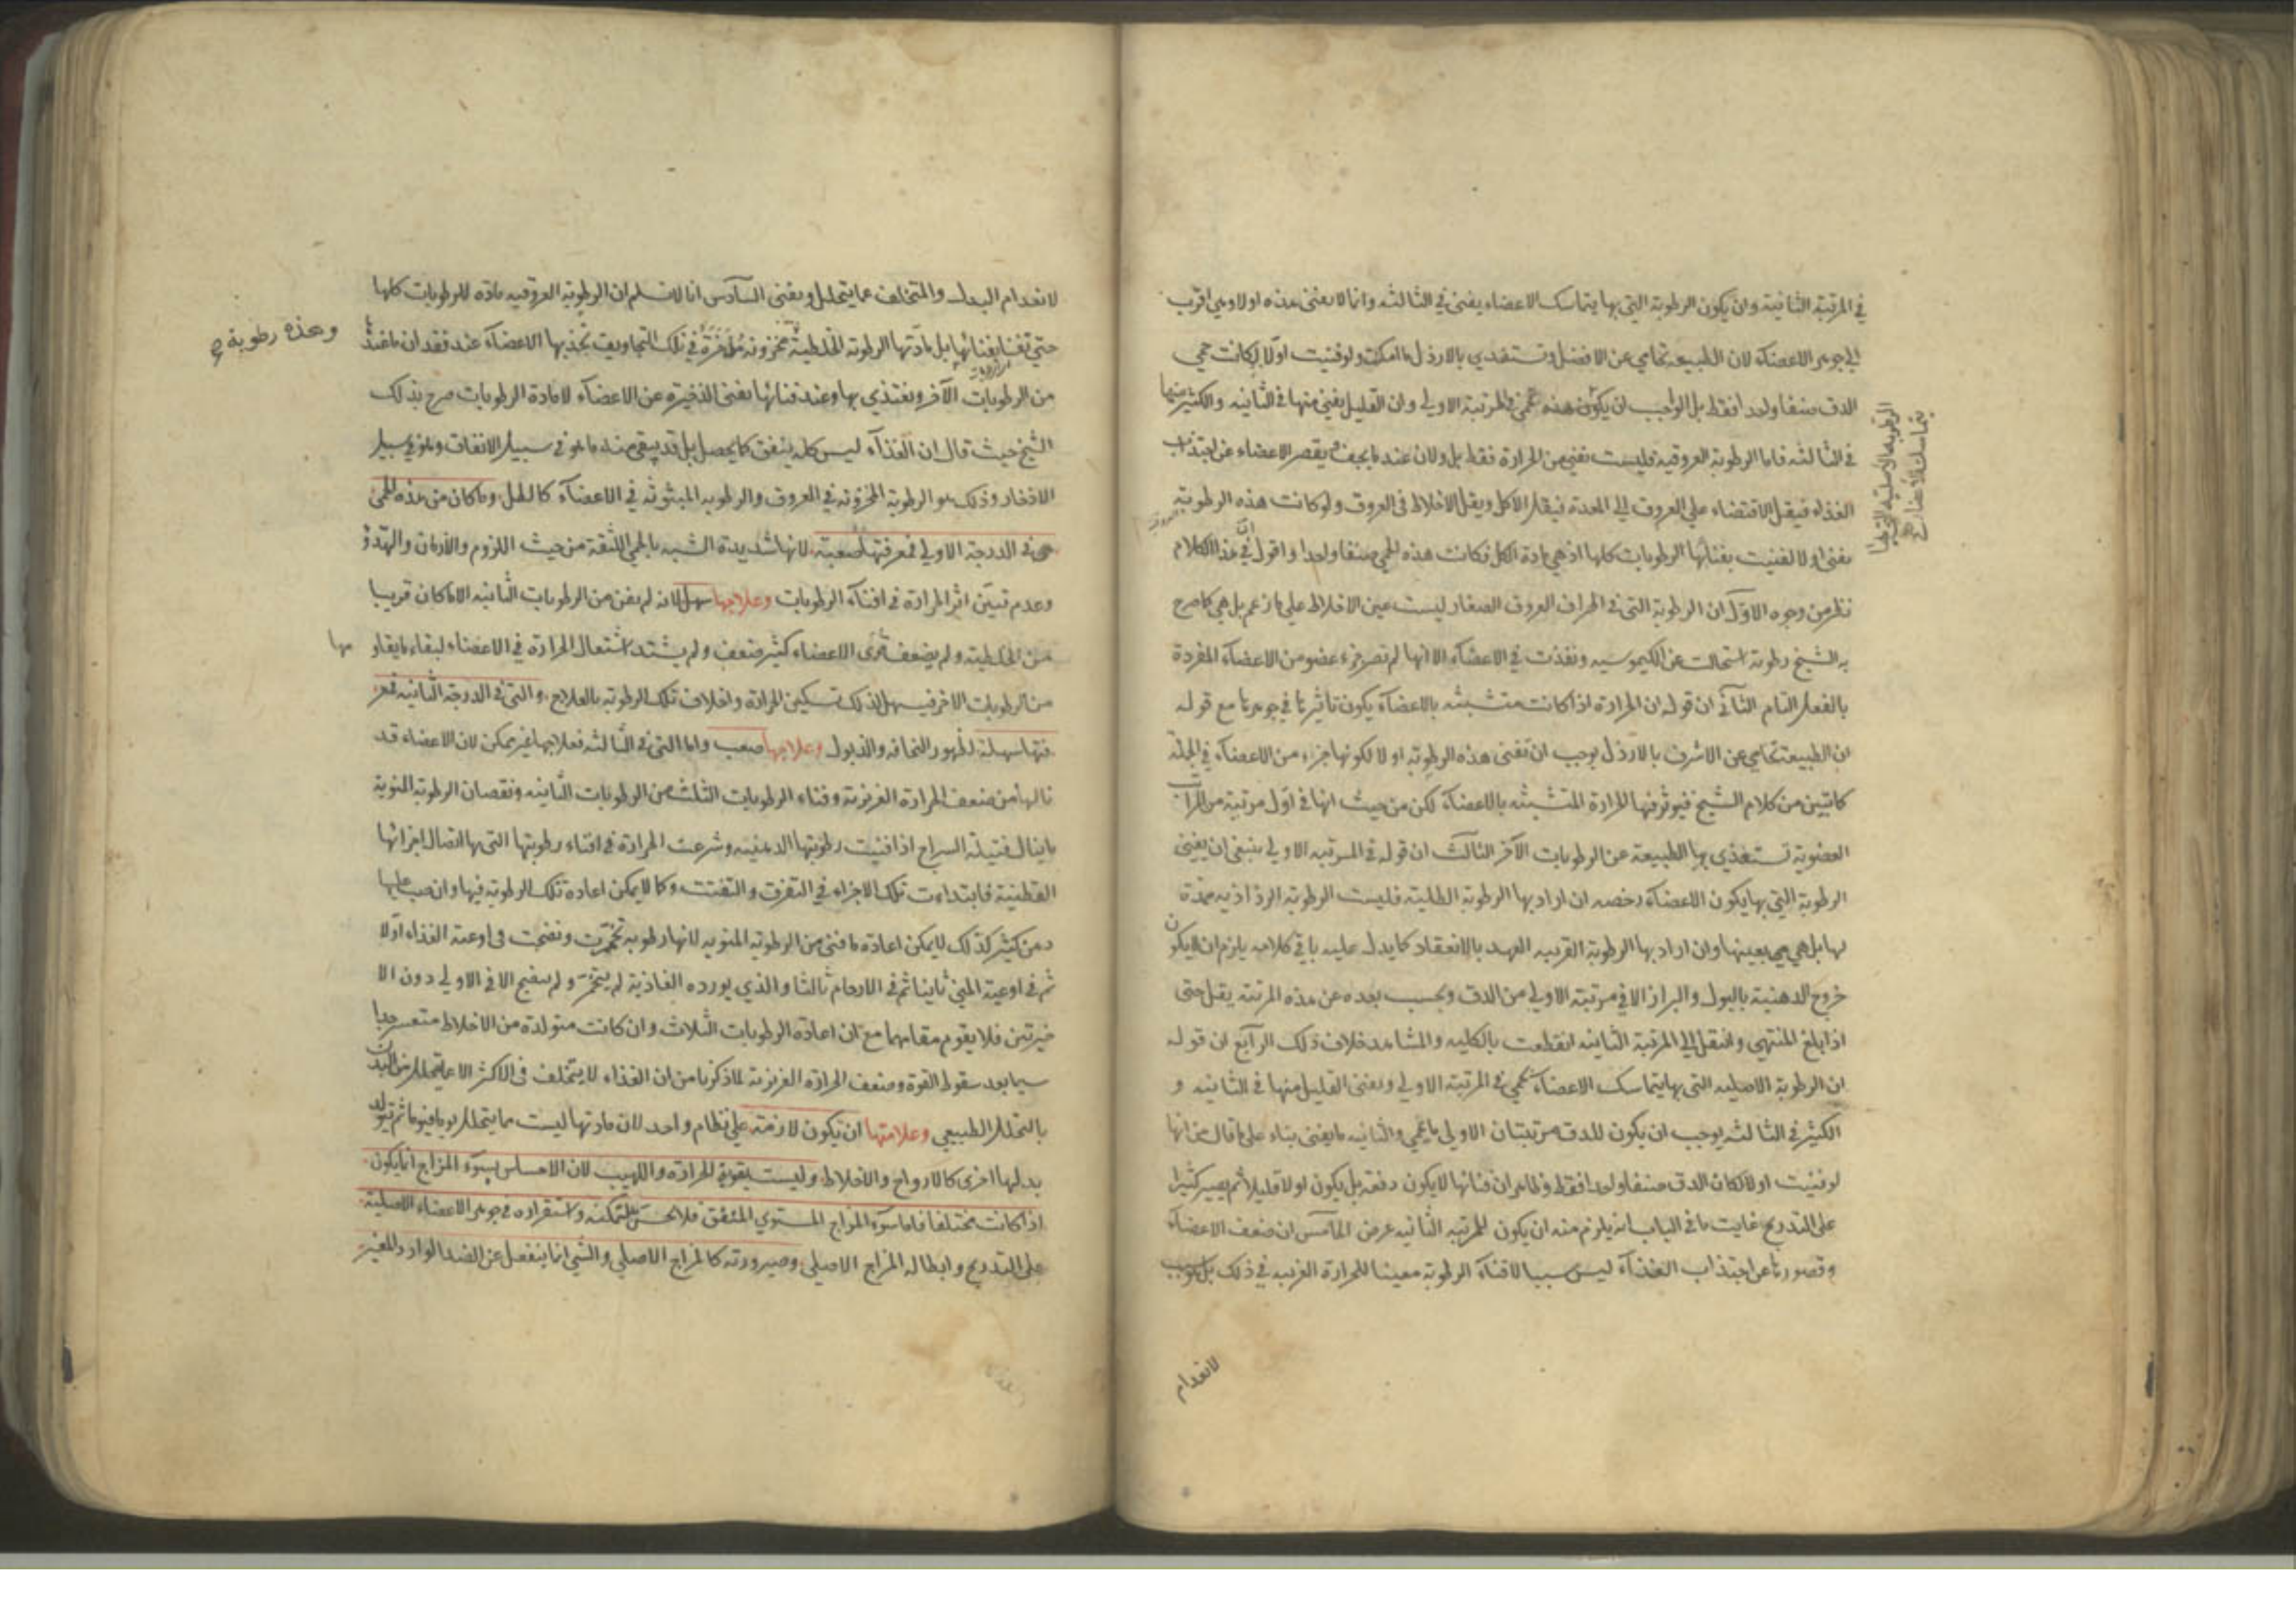 في المرتبة الثانية وان يكون الرطوبة التي بها يتماسك الاعضاء يفنى في الثالثة وانما لا يفنى هذه اولا وهي اقرب
الى جوهر الاعضاء لان الطبيعة تحامي عن الافضل وتستفدي بالارذل ما امكن ولو فنيت اولا لكانت حمى
الدق صنفا واحدا فقط بل الواجب ان يكون هذه تحمى في المرتبة الاولى وان القليل يفنى منها في الثانية والكثير منها
في الثالثة فاما الرطوبة العروقية فليست تفنى من الحرارة فقط بل ولان عندما يجف يقصر الاعضاء عن اجتذاب
الغذاء فيقل الاقتضاء على العروق الى المعدة فيقل الاكل ويقل الاخلاط في العروق ولو كانت هذه الرطوبة
يفنى اولا لفنيت بفنائها الرطوبات كلها اذ هي مادة الكل فكانت هذه الحمى صنفا واحدا واقول في هذا الكلام
نظر من وجوه الاول ان الرطوبة التي في اطراف العروق الصغار ليست عين الاخلاط على ما زعم بل هي كما صرح
به الشيخ رطوبة استحالت عن الكيموسية ونفذت في الاعضاء الا انها لم تصر جزء عضو من الاعضاء المفردة
بالفعل التام الثاني ان قوله ان الحرارة اذا كانت متشبثة بالاعضاء يكون تاثيرها في جوهرها مع قوله
ان الطبيعة تحامي عن الاشرف بالارذل يوجب ان تفنى هذه الرطوبة اولا لكونها جزء من الاعضاء في الجملة
كما تبين من كلام الشيخ فيوثر فيها الحرارة المتشبثة بالاعضاء لكن من حيث انها في اول مرتبة من المراتب
العضوية تستفدي بها الطبيعة عن الرطوبات الاخر الثالث ان قوله في المرتبة الاولى ينبغي ان يفنى
الرطوبة التي بها يكون الاعضاء رخصة ان اراد بها الرطوبة الطلية فليست الرطوبة الرذاذية ممدة
لها بل هي هي بعينها وان اراد بها الرطوبة القريبة العهد بالانعقاد كما يدل عليه باقي كلامه يلزم ان لا يكون
خروج الدهنية بالبول والبراز الا في مرتبة الاولى من الدق وبحسب بعده عن هذه المرتبة يقل حتى
اذا بلغ المنتهى وانتقل الى المرتبة الثانية انقطعت بالكلية والمشاهد خلاف ذلك الرابع ان قوله
ان الرطوبة الاصلية التي بها يتماسك الاعضاء تحمى في المرتبة الاولى ويفنى القليل منها في الثانية و
الكثير في الثالثة يوجب ان يكون للدق مرتبتان الاولى ما يحمى والثانية ما يفنى بناء على ما قال من انها
لو فنيت اولا لكان الدق صنفا واحدا فقط وظاهر ان فنائها لا يكون دفعة بل يكون اولا قليلا ثم يصير كثيرا
على التدريج غايت ما في الباب انه يلزم منه ان يكون للمرتبة الثانية عرض الخامس ان ضعف الاعضاء
وقصورها عن اجتذاب الغذاء ليس سببا لافناء الرطوبة معينا للحرارة الغريبة في ذلك بل سبب
الرطوبة الاصلية التي بها
يتماسك الاعضاء
لانعدام
لانعدام البدل والمتخلف عما يتحلل ويفنى السادس انا لا نسلم ان الرطوبة العروقية مادة للرطوبات كلها
حتى تفنى بفنائها بل مادتها الرطوبة الخلطية مخزونة مدخرة في تلك التجاويف تجذبها الاعضاء عند فقدان
وهذه رطوبة
من الرطوبات الاخر ويغتذي بها وعند فنائها يفنى الذخيرة عن الاعضاء لا مادة الرطوبات صرح بذلك
الشيخ حيث قال ان الغذاء ليس كله ينفق كما يحصل بل قد يبقى منه ما هو في سبيل الانفاق وما هو في سبيل
الادخار وذلك هو الرطوبة المخزونة في العروق والرطوبة المبثوثة في الاعضاء كالطل وما كان من هذه الحمى
في الدرجة الاولى فمعرفتها صعبة لانها شديدة الشبه بالحمى اللثقة من حيث اللزوم والادمان والهدؤ
وعدم تبين اثر الحرارة في افناء الرطوبات وعلاجها سهل لانه لم يفن من الرطوبات الثانية الا ما كان قريبا
من الخلطية ولم يضعف قوى الاعضاء كثير ضعف ولم يشتد اشتعال الحرارة في الاعضاء لبقاء ما يقاومها
من الرطوبات الاخر فيسهل لذلك تسكين الحرارة واخلاف تلك الرطوبة بالعلاج والتي في الدرجة الثانية فمعر
فتها سهلة لظهور النحافة والذبول وعلاجها صعب واما التي في الثالثة فعلاجها غير ممكن لان الاعضاء قد
نالها من ضعف الحرارة الغريزية وفناء الرطوبات الثلث من الرطوبات الثانية ونقصان الرطوبة المنوية
ما ينال فتيلة السراج اذا فنيت رطوبتها الدهنية وشرعت الحرارة في افناء رطوبتها التي بها اتصال اجزائها
القطنية فابتداءت تلك الاجزاء في التفرق والتفتت وكما لا يمكن اعادة تلك الرطوبة فيها وان صب عليها
دهن كثير كذلك لا يمكن اعادة ما فنى من الرطوبة المنوية لانها رطوبة تخمرت ونضجت في اوعية الغذاء اولا
ثم في اوعية المني ثانيا ثم في الارحام ثالثا والذي يورده الغاذية لم يتخمر ولم ينضج الا في الاولى دون الا
خيرتين فلا يقوم مقامهما مع ان اعادة الرطوبات الثلاث وان كانت متولدة من الاخلاط متعسر جدا
سيما بعد سقوط القوة وضعف الحرارة الغريزية لما ذكرنا من ان الغذاء لا يتخلف في الاكثر الا عما يتحلل من البدن
بالتحلل الطبيعي وعلامتها ان يكون لازمة على نظام واحد لان مادتها ليست مما يتحلل يوما فيوما ثم يتولد
بدلها اخرى كالارواح والاخلاط وليست بقوية الحرارة واللهيب لان الاحساس بسوء المزاج انما يكون
اذا كانت مختلفا فاما سوء المزاج المستوي المتفق فلا يحس لتمكنه واستقراره في جوهر الاعضاء الاصلية
على التدريج وابطاله المزاج الاصلي وصيرورته كالمزاج الاصلي والشيء انما ينفعل عن الضد الوارد المغير